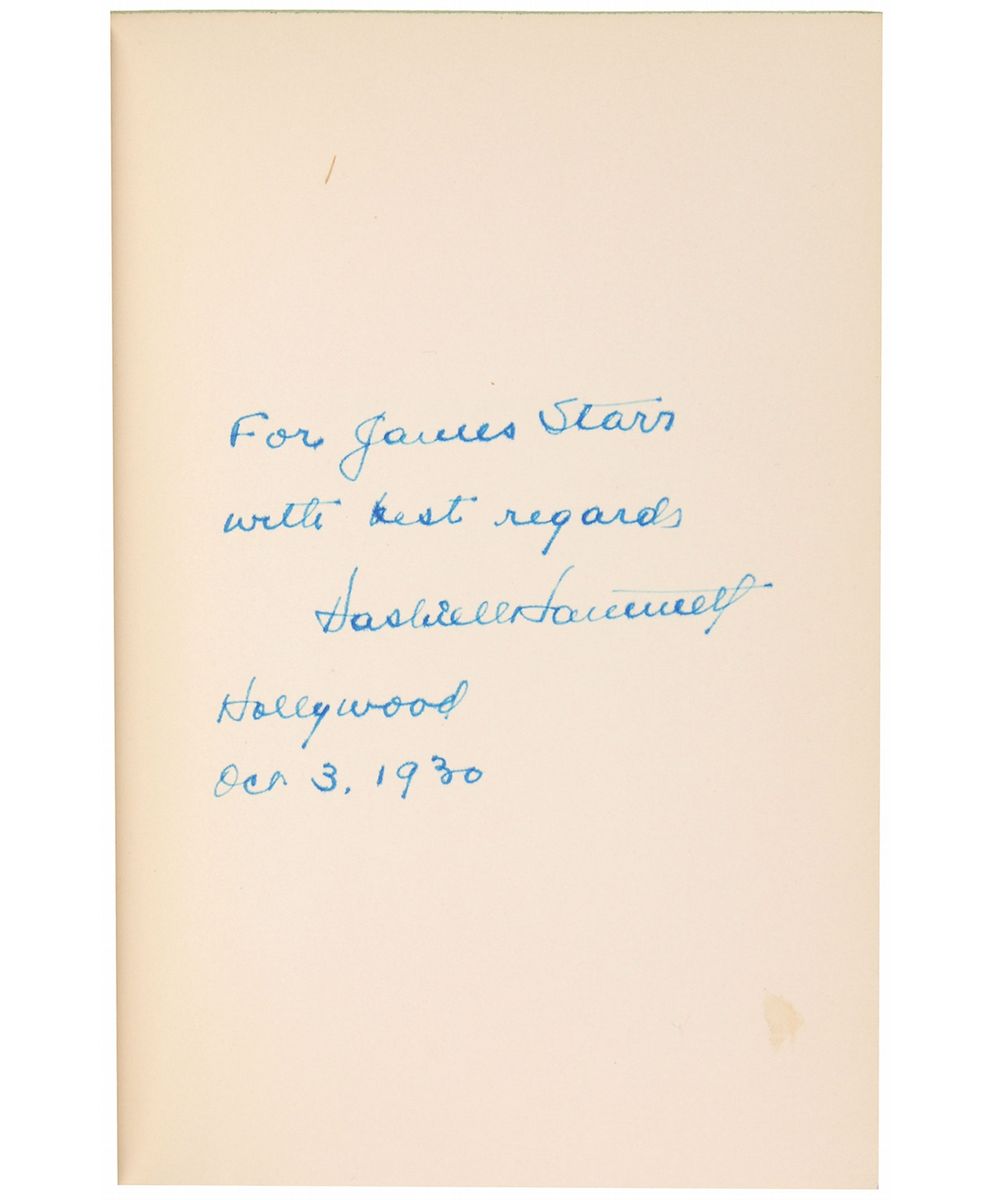 For James Starr
with best regards
Dashiell Hammett
Hollywood
Oct 3, 1930